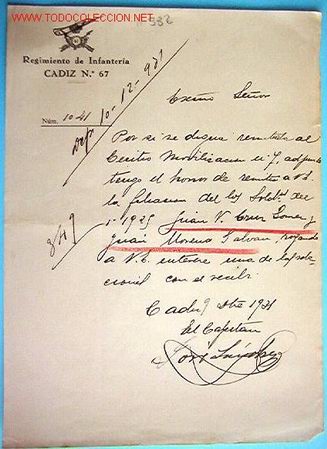 WWW.TODOCOLECCION.NET
332
Regimiento de Infantería
CADIZ N.º 67
Núm. 1041
10-12-931
Excmo Señor
Por si se digna remitir al
Centro Movilización nº 7, adjunto
tengo el honor de remitir a V.E.
la filiación del los Soldº del
1º 1935 Juan V. Cruz Gomez y
Juan Moreno Galvan, rogando
a V.E. una de las
con el recibí
Cadiz 9 Dbre 1931
El Capitan